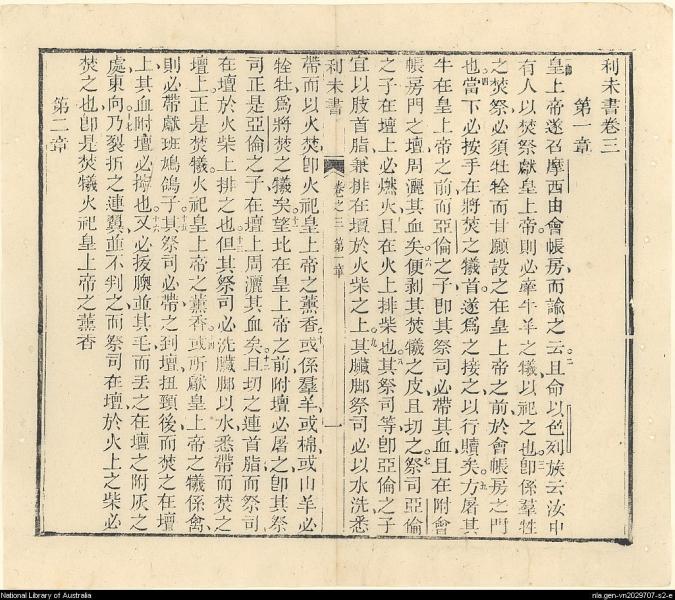 利未書卷三
第一章
皇上帝遂召摩西由會帳房而諭之云。二且命以色列族云汝中
有人以焚祭獻皇上帝則必牽牛羊之犧以祀之也。三卽係羣牲
之焚祭必須牡牷而甘願設之在皇上帝之前於會帳房之門
也。四當下必按手在將焚之犧首遂爲之接之以行贖矣。五方屠其
牛在皇上帝之前而亞倫之子卽其祭司必帶其血且在附會
帳房門之壇周灑其血矣。六便剥其焚犧之皮且切之。七祭司亞倫
之子在壇上必燃火且在火上排柴也。八其祭司等卽亞倫之子
宜以肢首脂兼排在壇於火柴之上。九其臟脚祭司必以水洗悉
利未書 卷之三 第一章 一
帶而以火焚卽火祀皇上帝之薰香。十或係羣羊或棉或山羊必
牷牡爲將焚之犧矣。十一望北在皇上帝之前附壇必屠之卽其祭
司正是亞倫之子在壇上周灑其血矣。十二且切之連首脂而祭司
在壇於火柴上排之也。十三但其祭司必洗臟脚以水悉帶而焚之
壇上正是焚犧火祀皇上帝之薰香。十四或所獻皇上帝之犧係禽
則必帶獻班鳩鴿子。十五其祭司必帶之到壇扭頸後而焚之在壇
上其血附壇必擠也。十六又必拔膆並其毛而丟之在壇之附灰之
處東向。十七乃裂拆之連翼並不判之而祭司在壇於火上之柴必
焚之也卽是焚犧火祀皇上帝之薰香
第二章
National Library of Australia
nla.gen-vn2029707-s2-e